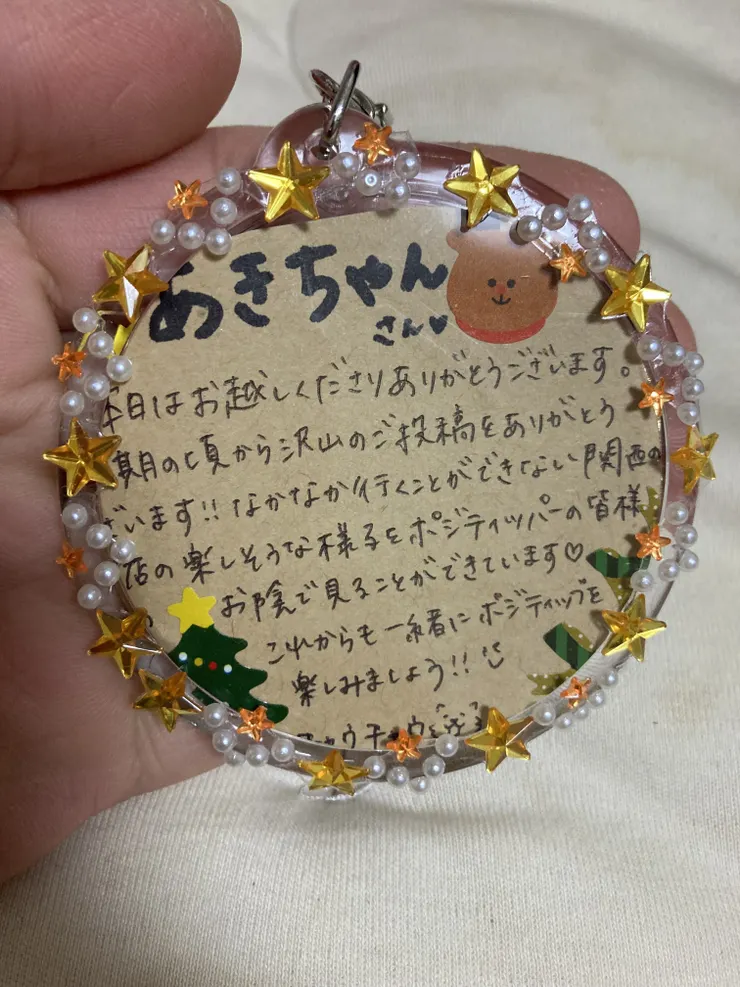 あきちゃん
さん♡
本日はお越しくださりありがとうございます。
期の頃から沢山のご投稿をありがとう
ざいます!! なかなか行くことができない関西の
店の楽しそうな様子をポジティッパーの皆様
お陰で見ることができています♡
これからも一緒にポジティップを
楽しみましょう!!